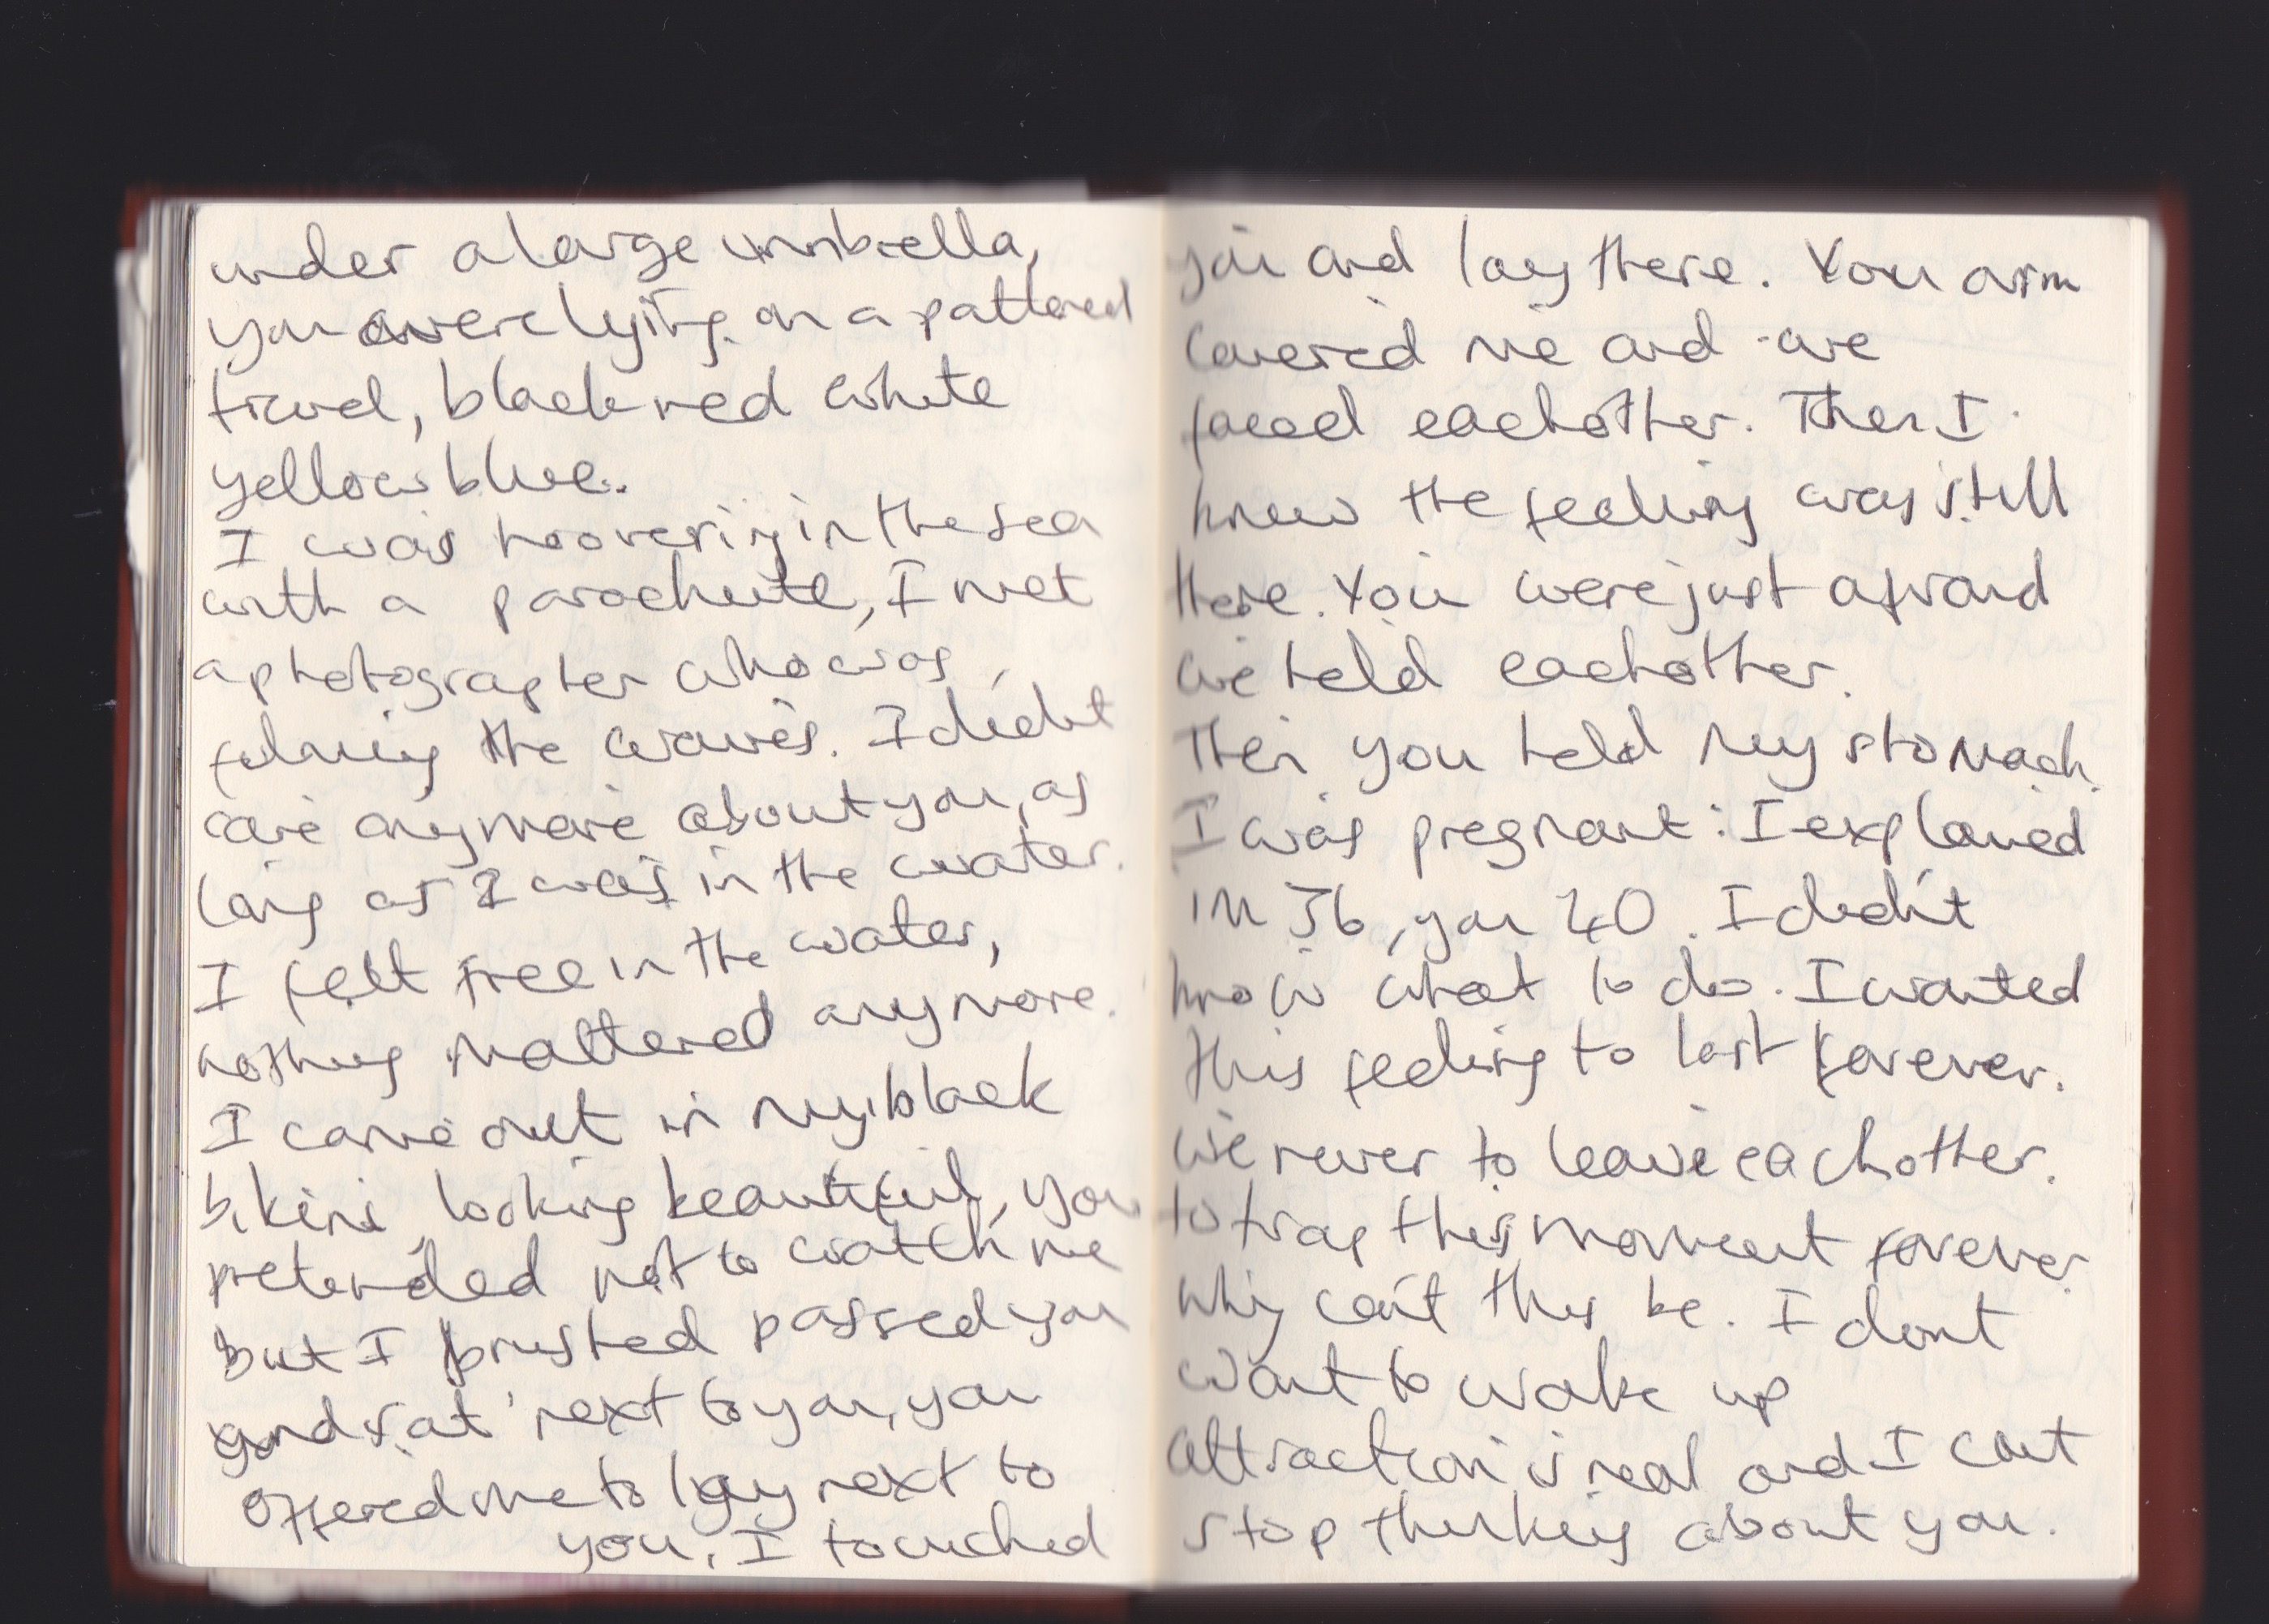 under a large umbrella,
you were lying on a pattered
towel, black red white
yellow blue.
I was hoovering in the sea
with a parachute, I met
a photographer who was
filming the waves. I didnt
care anymore about you, as
long as I was in the water.
I felt free in the water,
nothing mattered anymore.
I came out in my black
bikini, looking beautiful, you
pretended not to watch me
but I brushed passed you
and sat next to you, you
offered me to lay next to
you, I touched
you and lay there. You arm
covered me and we
faced eachother. Then I
knew the feeling was still
there. You were just afraid
we held eachother.
Then you held my stomach.
I was pregnant: I explained
im 36, you 40. I didn't
know what to do. I wanted
this feeling to last forever.
we never to leave eachother.
to trap this moment forever
why can't this be. I dont
want to wake up
attraction is real and I cant
stop thinking about you.